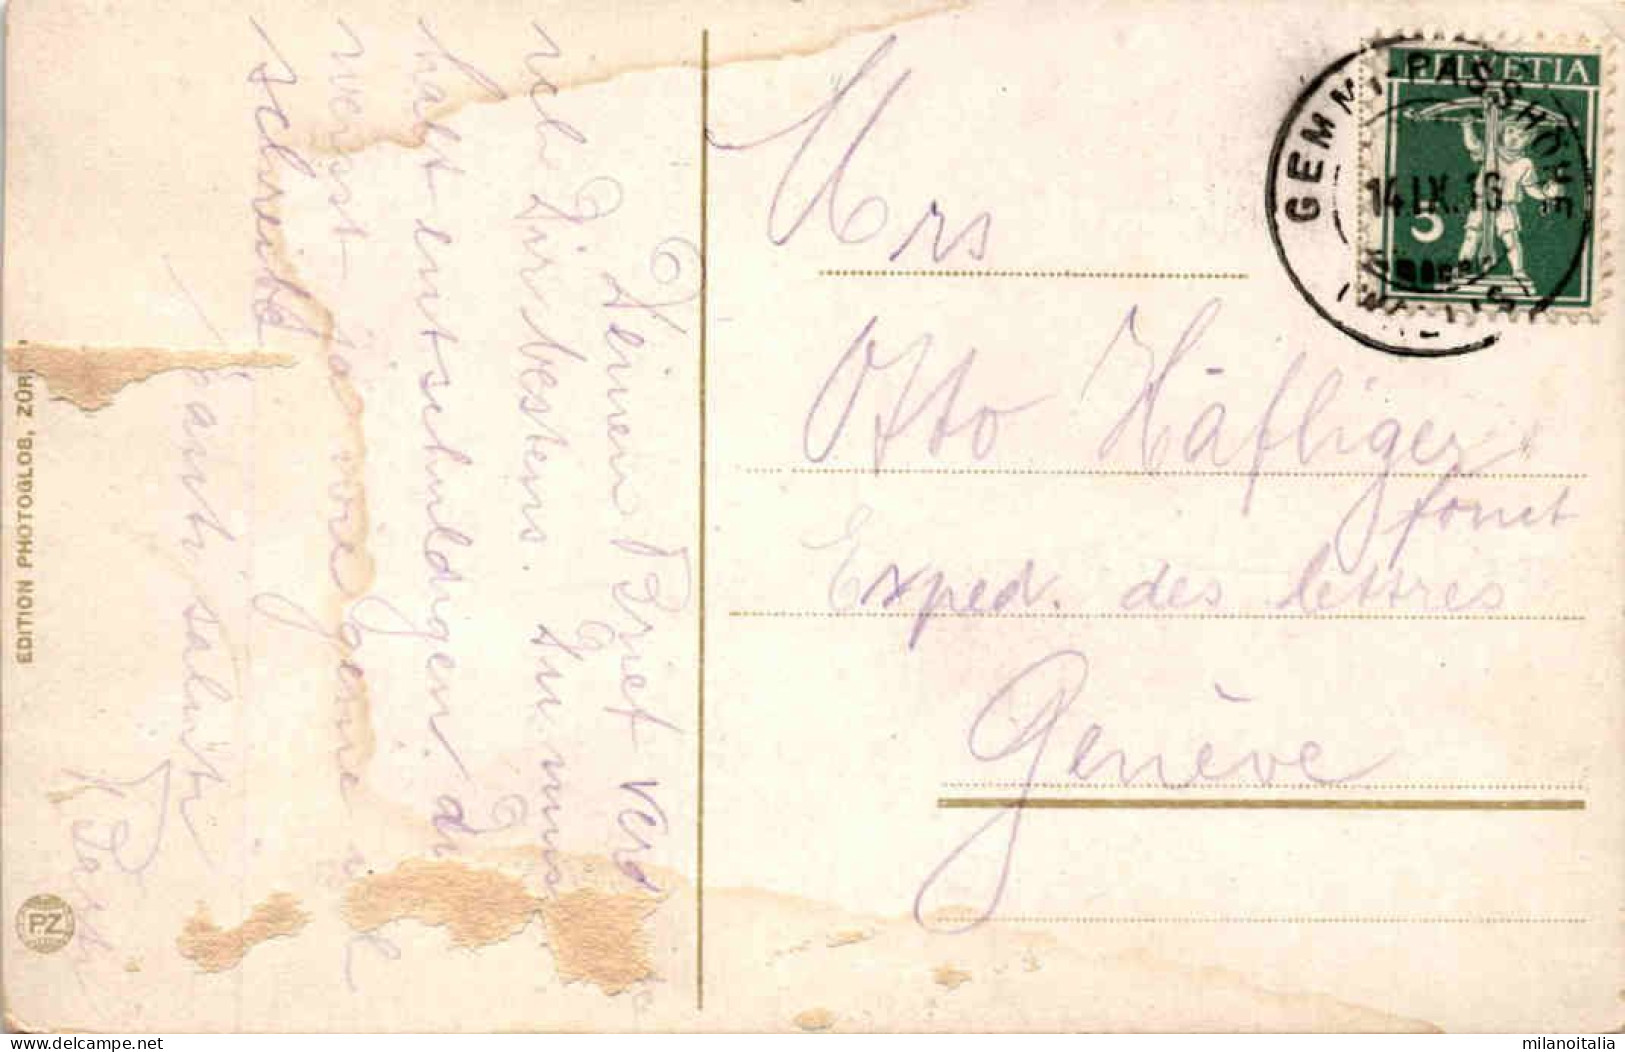 HELVETIA
5
GEMMI-PASSHÖHE
14.IX.16
(WALLIS)
Mrs
Otto Häfliger
fonct
Exped. des lettres
Genève
Deinen Brief verd
Dir bestens. Du muss
haft entschuldigen
weisst ja wie gerne
schreibt
EDITION PHOTOGLOB, ZÜR
PZ
www.delcampe.net
milanoitalia